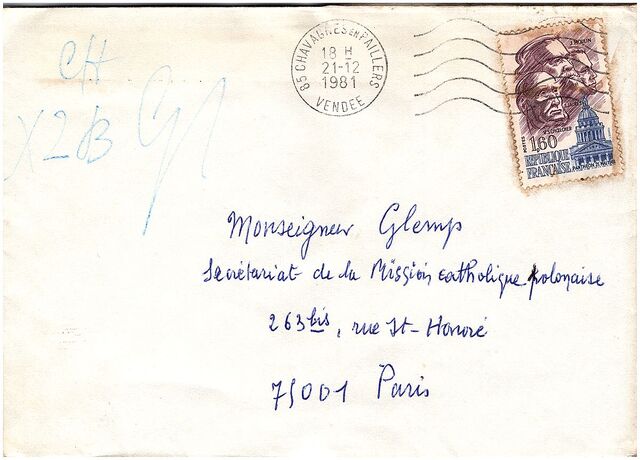 85 CHAVAGNES EN PAILLERS
18 H
21-12
1981
VENDEE
J.MOULIN
POSTES 1,60
REPUBLIQUE
FRANÇAISE
CH
X2B
Monseigneur Glemp
Secrétariat de la Mission catholique polonaise
263 bis, rue St-Honoré
75001 Paris